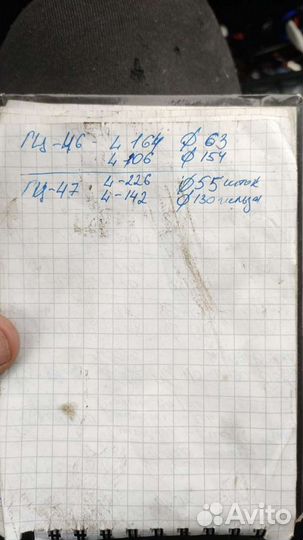 ГЦ-46 - 4 164 Ø 63
4 106 Ø 154
ГЦ-47 4-226 Ø 55 шток
4-142 Ø 130 гильза
Avito